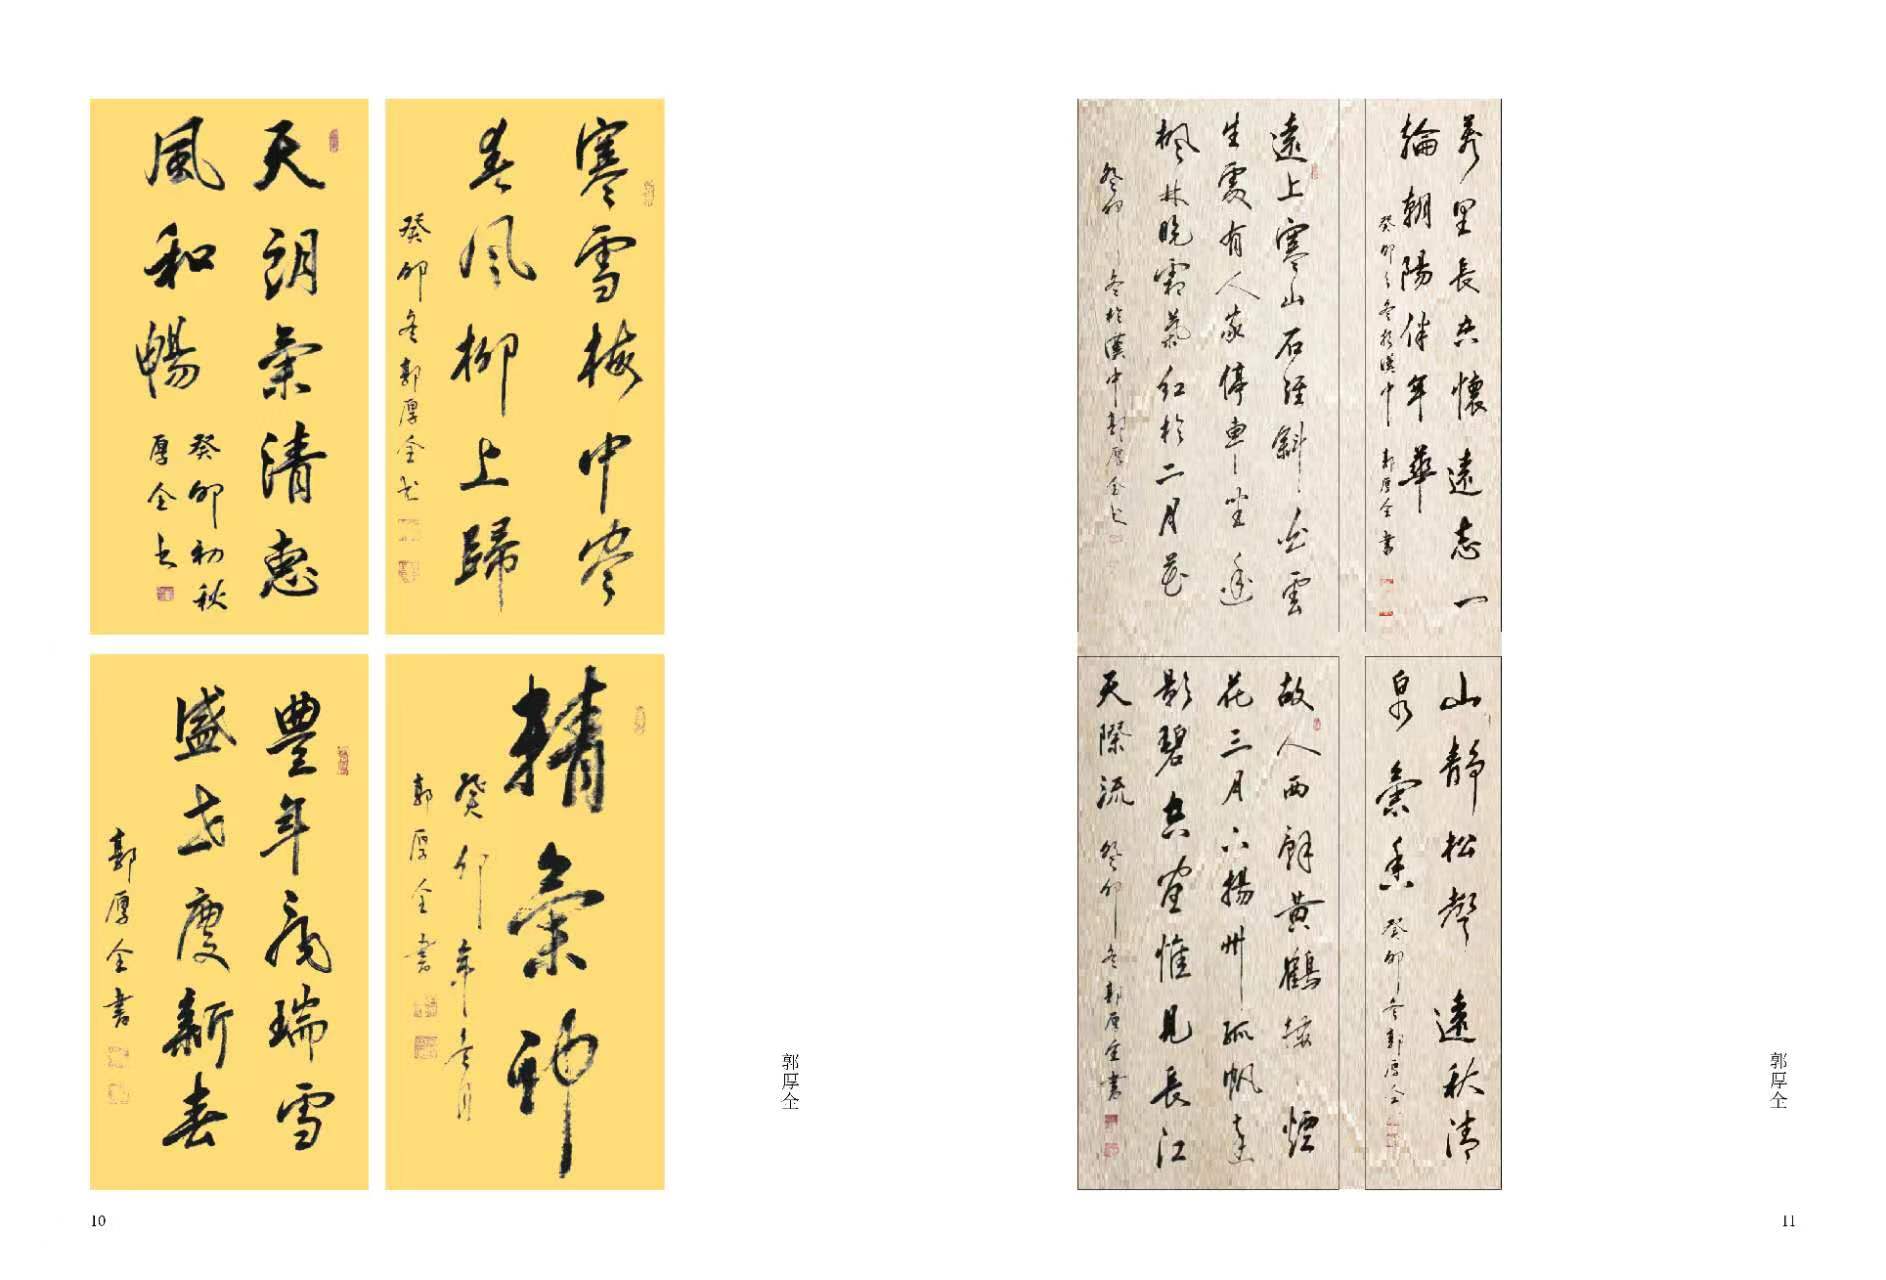 天朗氣清惠
風和暢
癸卯初秋
厚全书
寒雪梅中盡
春风柳上歸
癸卯冬郭厚全书
豐年飛瑞雪
盛世慶新春
郭厚全書
精氣神
癸卯年冬月
郭厚全書
郭厚全
10
萬里長空懷遠志一
輪朝陽伴年華
癸卯之冬於漢中 郭厚全書
遠上寒山石徑斜白雲
生處有人家停車坐愛
楓林晚霜葉紅於二月花
癸卯冬於漢中郭厚全书
山靜松聲遠秋清
泉氣香
癸卯冬郭厚全
故人西辭黃鶴樓煙
花三月下揚州孤帆遠
影碧空盡惟見長江
天際流
癸卯冬郭厚全書
郭厚全
11